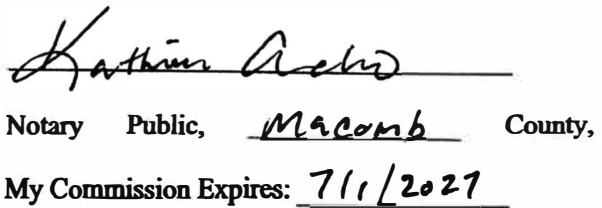 Kathrin
Notary Public, Macomb County,
My Commission Expires: 7/1/2027